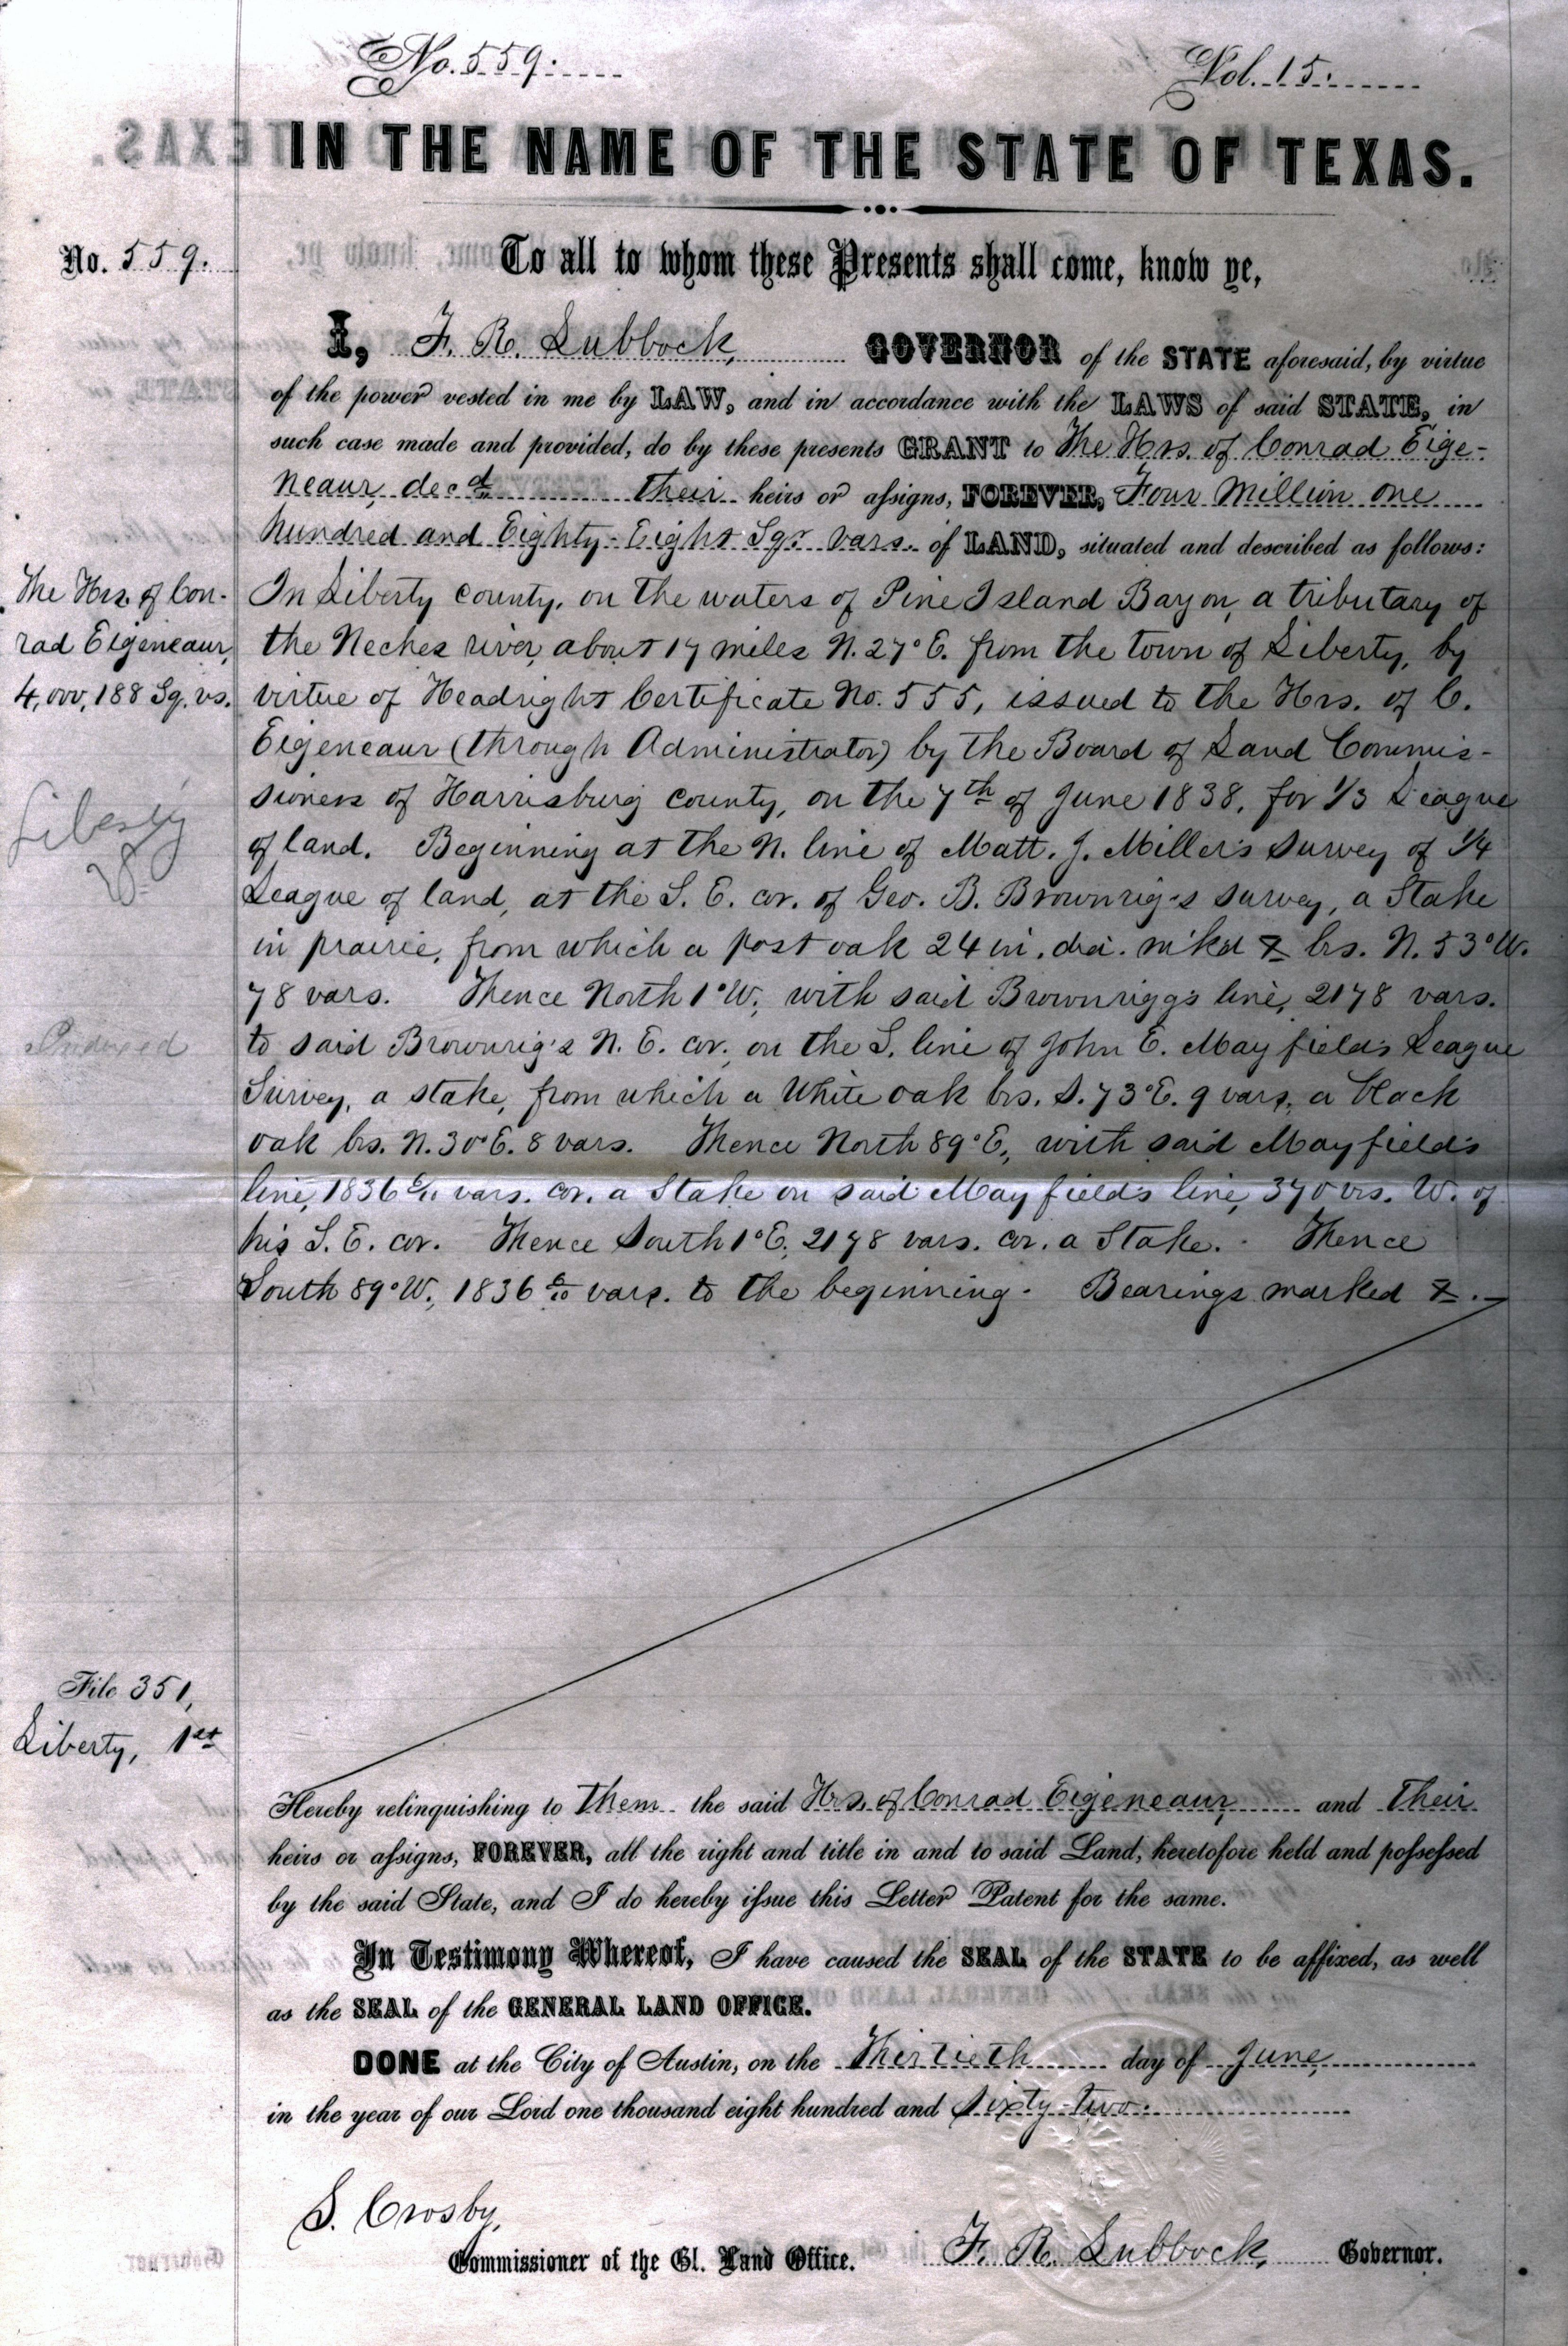 No. 559.
Vol. 15.
IN THE NAME OF THE STATE OF TEXAS.
No. 559.
To all to whom these Presents shall come, know ye,
I, F. R. Lubbock, GOVERNOR of the STATE aforesaid, by virtue
of the power vested in me by LAW, and in accordance with the LAWS of said STATE, in
such case made and provided, do by these presents GRANT to The Hrs. of Conrad Eige-
neaur, decd. their heirs or assigns, FOREVER, Four Million one
hundred and Eighty-Eight Sqr. vars. of LAND, situated and described as follows:
The Hrs. of Con-
rad Eigeneaur,
4,000,188 Sq. vs.
Liberty
Indexed
In Liberty county, on the waters of Pine Island Bayou, a tributary of
the Neches river, about 17 miles N. 27° E. from the town of Liberty, by
virtue of Headright Certificate No. 555, issued to the Hrs. of C.
Eigeneaur (through Administrator) by the Board of Land Commis-
sioners of Harrisburg county, on the 7th of June 1838, for 1/3 League
of land. Beginning at the N. line of Matt. J. Miller's survey of 1/4
League of land, at the S. E. cor. of Geo. B. Brownrig's survey, a Stake
in prairie, from which a post oak 24 in. dia. mkd brs. N. 53° W.
78 vars. Thence North 1° W, with said Brownrigg's line, 2178 vars.
to said Brownrig's N. E. cor. on the S. line of John E. Mayfield's League
Survey, a stake, from which a White oak brs. S. 73° E. 9 vars, a black
oak brs. N. 30° E. 8 vars. Thence North 89° E, with said Mayfield's
line, 1836 6/10 vars. cor. a Stake on said Mayfield's line, 370 vrs. W. of
his S. E. cor. Thence South 1° E, 2178 vars. cor. a Stake. Thence
South 89° W, 1836 6/10 vars. to the beginning. Bearings marked
File 351,
Liberty, 1st
Hereby relinquishing to Them the said Hrs. of Conrad Eigeneaur, and Their
heirs or assigns, FOREVER, all the right and title in and to said Land, heretofore held and possessed
by the said State, and I do hereby issue this Letter Patent for the same.
In Testimony Whereof, I have caused the SEAL of the STATE to be affixed, as well
as the SEAL of the GENERAL LAND OFFICE.
DONE at the City of Austin, on the Thirtieth day of June,
in the year of our Lord one thousand eight hundred and sixty-two.
S. Crosby,
Commissioner of the Gl. Land Office.
F. R. Lubbock, Governor.